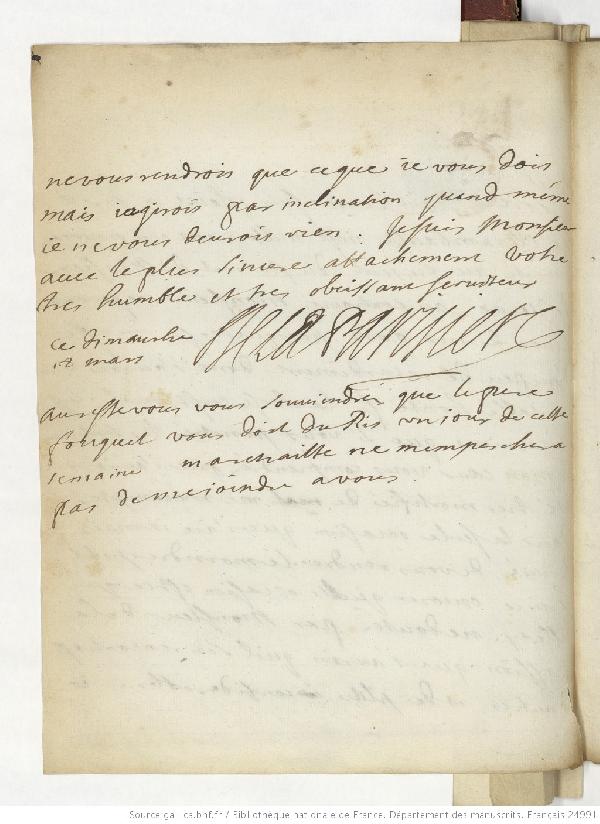 ne vous rendrois que ce que ie vous dois
mais iagirois par inclination quand mème
ie ne vous deurois rien. Je suis Monsieur
auec le plus sincere attachement Votre
tres humble et tres obeissant seruiteur
ce Dimanche
mars
Au reste vous vous souuiendréz que le pere
fouquet vous doit du Ris vn jour de cette
semaine marchaille ne mempeschera
pas de me joindre a vous.
Source gallica.bnf.fr / Bibliothèque nationale de France. Département des manuscrits. Français 24991